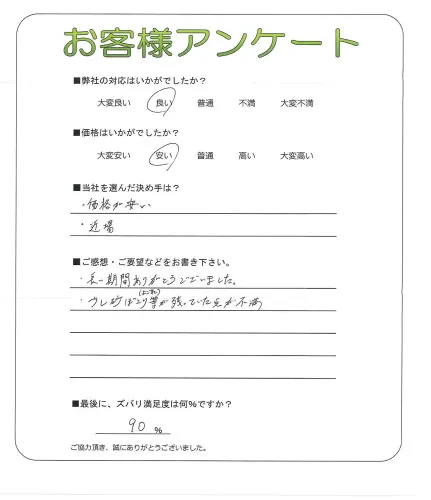 お客様アンケート
■弊社の対応はいかがでしたか?
大変良い 良い 普通 不満 大変不満
■価格はいかがでしたか?
大変安い 安い 普通 高い 大変高い
■当社を選んだ決め手は?
・価格が安い
・近場
■ご感想・ご要望などをお書き下さい。
・長い期間ありがとうございました。
・少し砂ぼこり等が残っていた点が不満
■最後に、ズバリ満足度は何%ですか?
90 %
ご協力頂き、誠にありがとうございました。